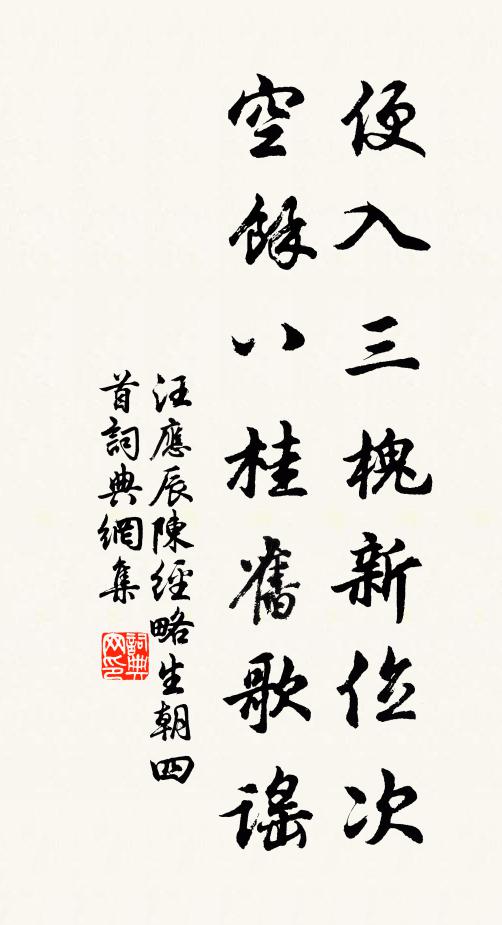 便入三槐新位次
空餘八桂舊歌謠
汪應辰陳經略生朝四
首詞典網集
詞典
网印